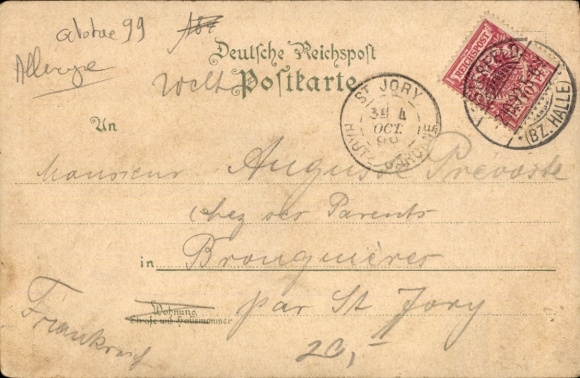 octobre 99
Allemagne
Deutsche Reichspost
Welt Postkarte
REICHSPOST
(BZ. HALLE)
ST JORY
4
OCT.
HAUTE GARONNE
An
Monsieur Auguste Prévoste
chez ses Parents
in Brouquières
Wohnung
Straße und Hausnummer
par St Jory
Frankreich
20,-